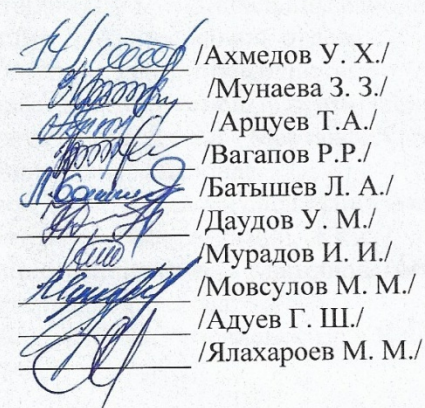 /Ахмедов У. Х./
/Мунаева З. З./
/Арцуев Т.А./
/Вагапов Р.Р./
/Батышев Л. А./
/Даудов У. М./
/Мурадов И. И./
/Мовсулов М. М./
/Адуев Г. Ш./
/Ялахароев М. М./